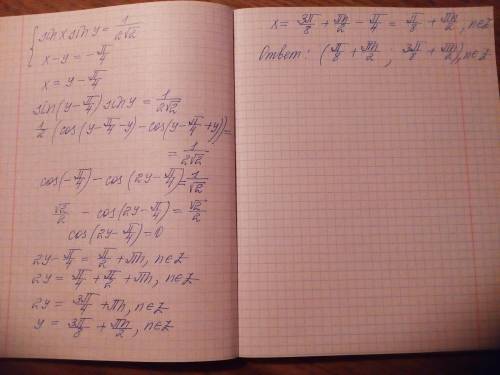 { sinx siny = 1/(2√2)
x - y = -π/4
x = y - π/4
sin(y - π/4) siny = 1/(2√2)
1/2 (cos(y - π/4 - y) - cos(y - π/4 + y)) =
= 1/(2√2)
cos(-π/4) - cos(2y - π/4) = 1/√2
√2/2 - cos(2y - π/4) = √2/2
cos(2y - π/4) = 0
2y - π/4 = π/2 + πn, n∈Z
2y = π/4 + π/2 + πn, n∈Z
2y = 3π/4 + πn, n∈Z
y = 3π/8 + πn/2, n∈Z
x = 3π/8 + πn/2 - π/4 = π/8 + πn/2, n∈Z
Ответ: (π/8 + πn/2, 3π/8 + πn/2), n∈Z